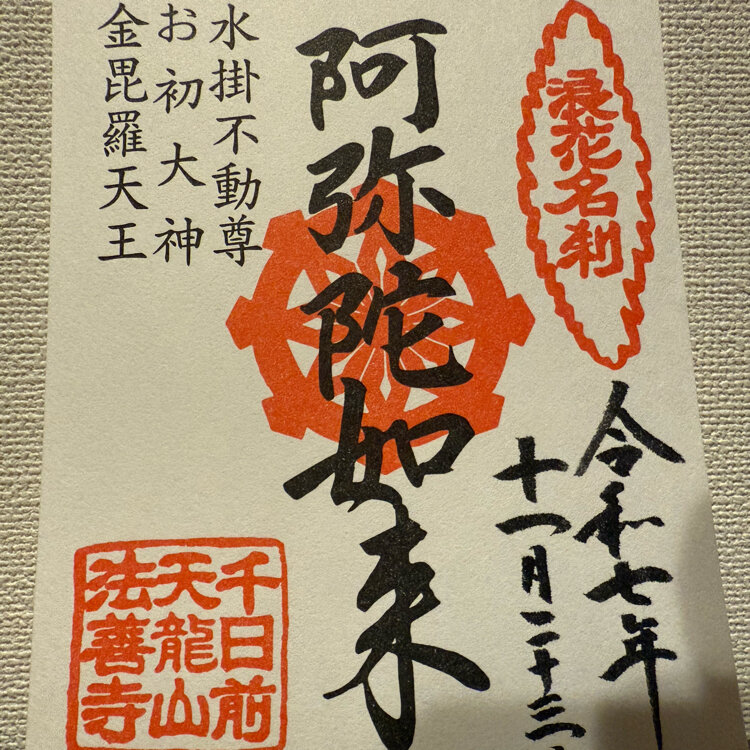 浪花名刹
令和七年
十一月二十三
阿弥陀如来
水掛不動尊
お初大神
金毘羅天王
千日前
天龍山
法善寺